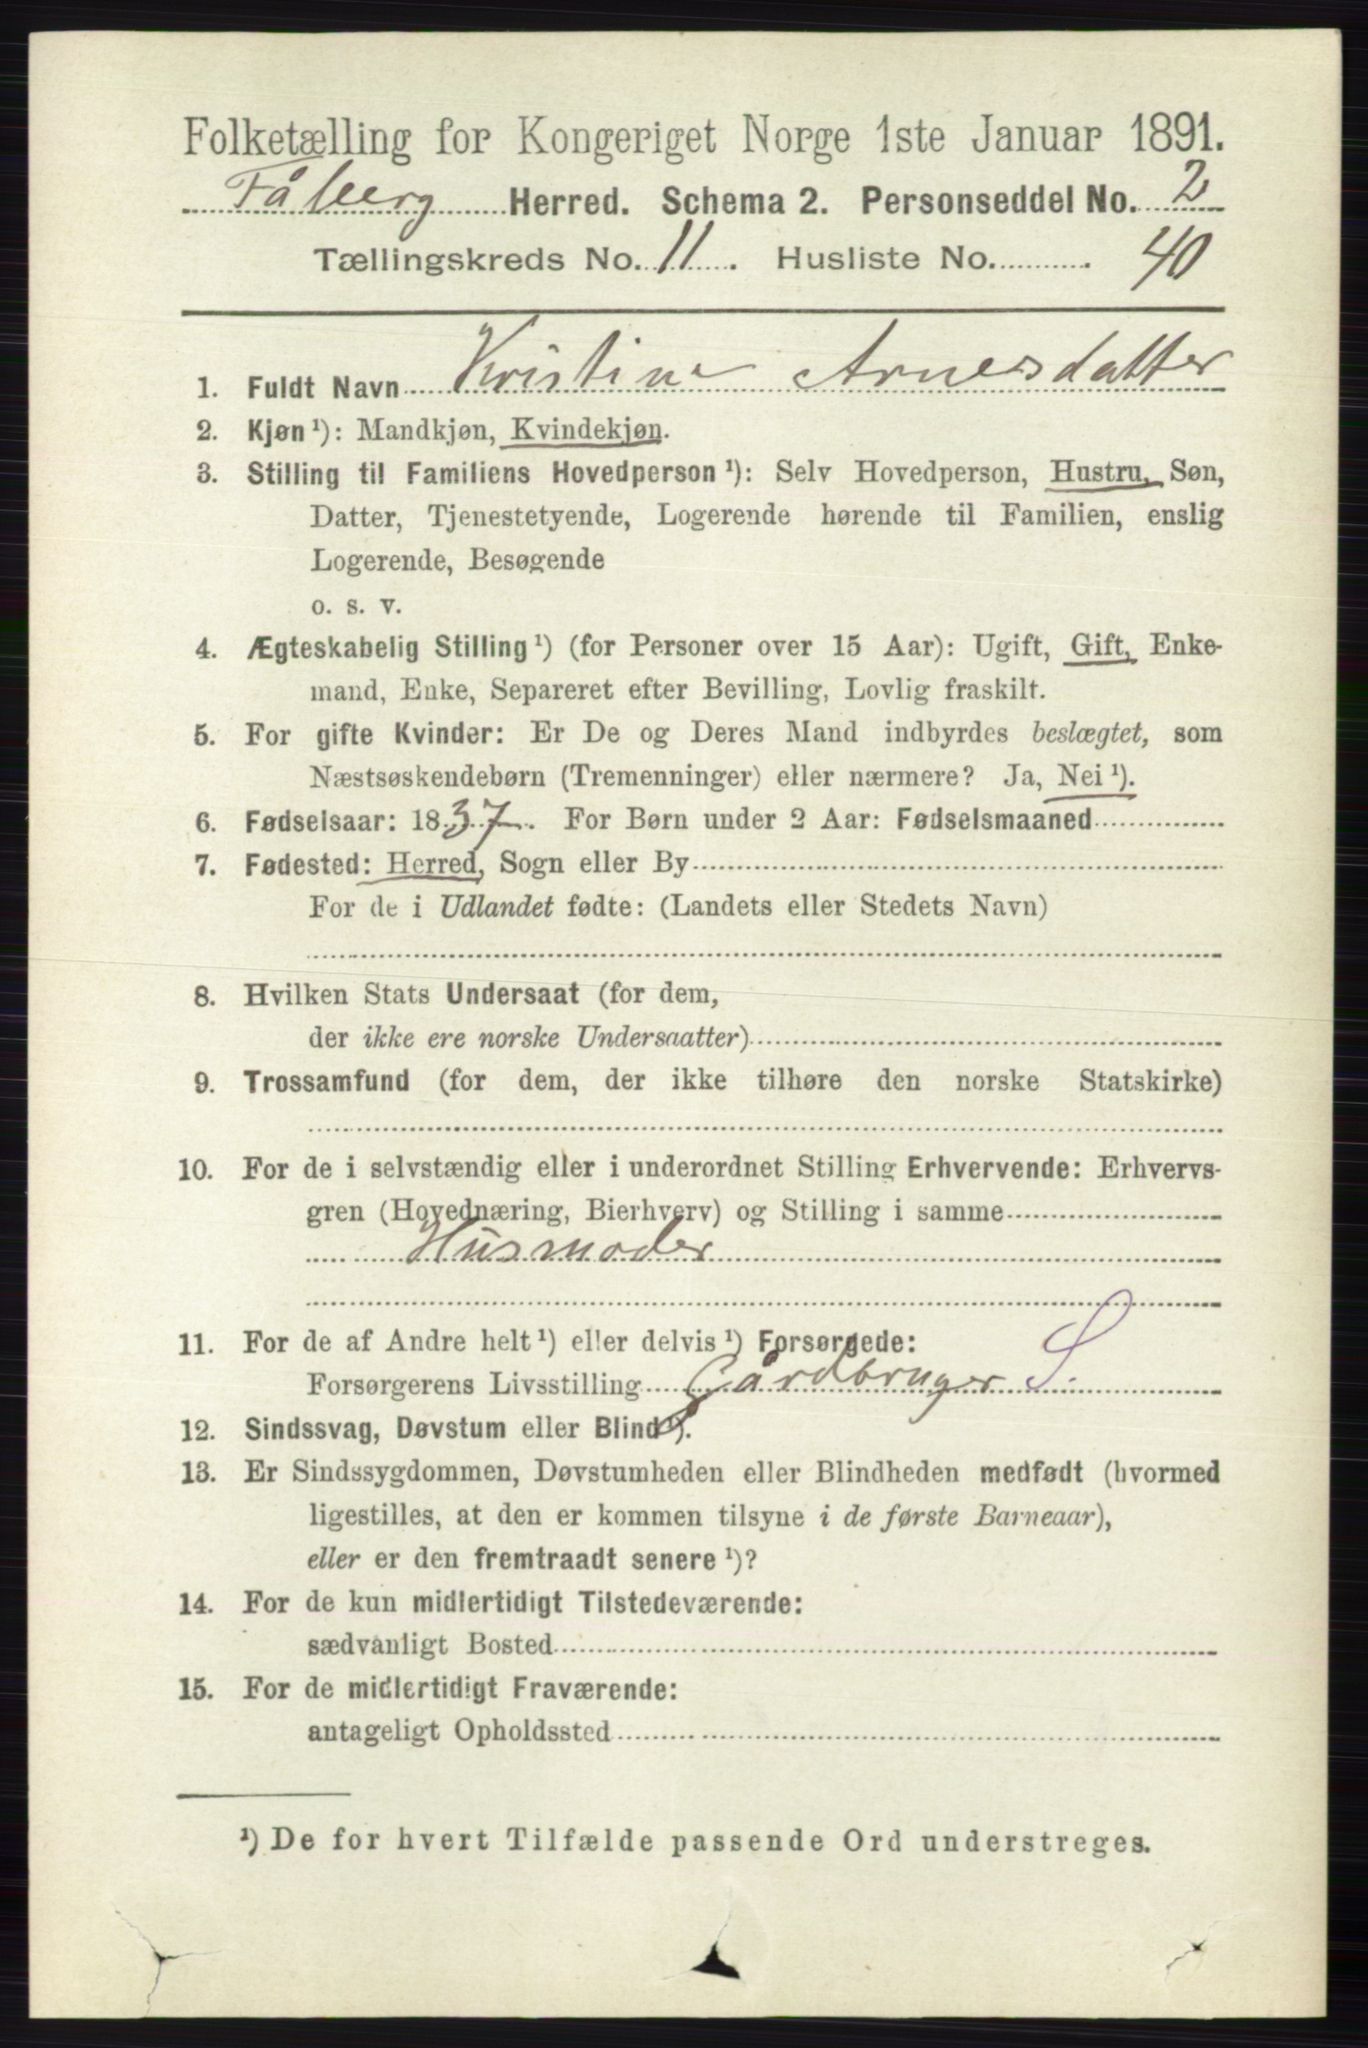 Folketælling for Kongeriget Norge 1ste Januar 1891.
Fåberg Herred. Schema 2. Personseddel No. 2
Tællingskreds No. 11. Husliste No. 40
1. Fuldt Navn Kristine Arnesdatter
2. Kjøn¹): Mandkjøn, Kvindekjøn.
3. Stilling til Familiens Hovedperson¹): Selv Hovedperson, Hustru, Søn,
Datter, Tjenestetyende, Logerende hørende til Familien, enslig
Logerende, Besøgende
o. s. v.
4. Ægteskabelig Stilling¹) (for Personer over 15 Aar): Ugift, Gift, Enke-
mand, Enke, Separeret efter Bevilling, Lovlig fraskilt.
5. For gifte Kvinder: Er De og Deres Mand indbyrdes beslægtet, som
Næstsøskendebørn (Tremenninger) eller nærmere? Ja, Nei¹).
6. Fødselsaar: 1837. For Børn under 2 Aar: Fødselsmaaned
7. Fødested: Herred, Sogn eller By
For de i Udlandet fødte: (Landets eller Stedets Navn)
8. Hvilken Stats Undersaat (for dem,
der ikke ere norske Undersaatter)
9. Trossamfund (for dem, der ikke tilhøre den norske Statskirke)
10. For de i selvstændig eller i underordnet Stilling Erhvervende: Erhvervs-
gren (Hovednæring, Bierhverv) og Stilling i samme
Husmoder
11. For de af Andre helt¹) eller delvis¹) Forsørgede:
Forsørgerens Livsstilling Gårdbruger S.
12. Sindssvag, Døvstum eller Blind¹).
13. Er Sindssygdommen, Døvstumheden eller Blindheden medfødt (hvormed
ligestilles, at den er kommen tilsyne i de første Barneaar),
eller er den fremtraadt senere¹)?
14. For de kun midlertidigt Tilstedeværende:
sædvanligt Bosted
15. For de midlertidigt Fraværende:
antageligt Opholdssted
¹) De for hvert Tilfælde passende Ord understreges.